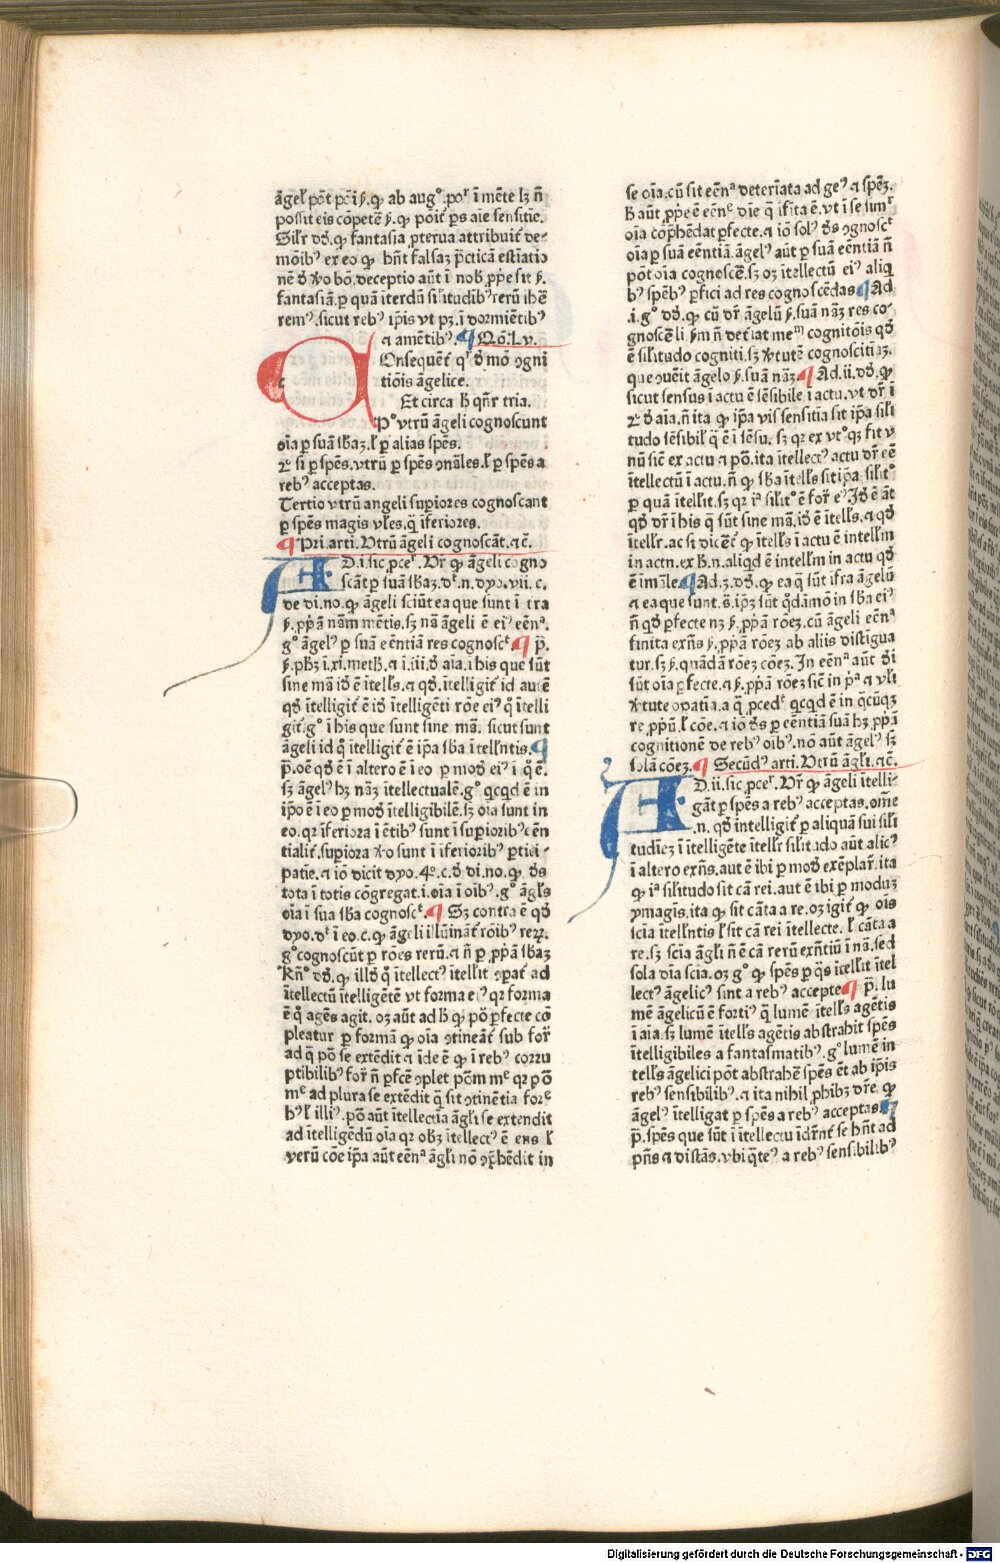 āgeł pōt pc̄i ẜ. ꝙ ab augº .poʳ ī mēte lꝫ ñ
possit eis cōpetē ẜ. ꝙ poīt p̄s aīe sensitīe.
Silr dꝫ. ꝙ fantasia ꝓterua attribuit̄ de
mōibꝰ ex eo ꝙ hn̄t falsaꝫ p̄cticā estīatio
nē ꝺ vo bō. deceptio aūt ī nob ꝓpe sit ẜ.
fantasiā. ꝑ quā iterdū silitudībꝰ rerū īhē
remꝰ. sicut rebꝰ ip̄is vt pꝫ. ī dormiētibꝰ
⁊ amētibꝰ. ¶ Qō. Lv.
Onsequēt̄ qʳ ꝺ mō ꝯgni
tiōis āgelice.
Et circa h̄ qn̄r tria.
Pº vtrū āgeli cognoscunt
oīa ꝑ suā sb̄aꝫ. ł ꝑ alias sp̄es.
2º si ꝑ sp̄es. vtrū ꝑ sp̄es ꝯnāles. ł ꝑ sp̄es a
rebꝰ acceptas.
Tertio vtrū angeli supiores cognoscant
ꝑ sp̄es magis vl̄es. q̄ iferiores.
¶ Pri. arti. Vtrū āgeli cognoscāt. ⁊c̄.
AD. i. sic. ꝓceʳ. Vr̄ ꝙ āgeli cogno
scāt ꝑ suā sb̄aꝫ. dᵗ. n. dyo. vii. c.
de di. no. ꝙ āgeli sciūt ea que sunt ī tra
ẜ. ꝓpā nām mētis. sꝫ nā āgeli ē eiꝰ eēnᵃ.
gº āgelꝰ ꝑ suā eēntiā res cognoscᵗ ¶ p̄.
ẜ. phꝫ i. xi. meth. ⁊ i. iii. ꝺ aīa. i his que sūt
sine mā idē ē itells. ⁊ qꝺ. itelligit̄ id aut ē
qꝺ itelligit̄ ē idē itelligēti rōe eiꝰ q̊ itelli
git̄. gº ī his que sunt sine mā. sicut sunt
āgeli id q̊ itelligit̄ ē ip̄a sb̄a itell̄ntis. ¶
p̄. oē qꝺ ē ī altero ē ī eo ꝑ modū eiꝰ ī q̊ ē.
sꝫ āgelꝰ hꝫ nāꝫ itellectualē. gº qcqd ē in
ip̄o ē ī eo ꝑ modū itelligibilē. sꝫ oīa sunt in
eo. qꝛ iferiora ī ētibꝰ sunt ī supioribꝰ eēn
tialit̄. supiora vo sunt ī iferioribꝰ ꝑtici
patie. ⁊ iō dicit dyo. 4º. c. ꝺ di. no. ꝙ ds
tota ī totis cōgregat. i. oīa ī oībꝰ. gº āgl̄s
oīa ī sua sb̄a cognoscᵗ. ¶ Sꝫ contra ē qꝺ
dyo. dᵗ ī eo. c. ꝙ āgeli illūināt̄ rōibꝰ reꝝ.
gº cognoscūt ꝑ rōes rerū. ⁊ ñ ꝑ ꝓpā sb̄aꝫ
Rn̄º dꝫ. ꝙ illꝺ q̊ itellectꝰ itell̄it ꝯpat̄ ad
itellectū itelligētē vt forma eiꝰ qꝛ forma
ē q̊ agēs agit. oꝫ aūt ad h̄ ꝙ pō ꝑfecte cō
pleatur ꝑ formā ꝙ oīa ꝯtineāt̄ sub forʳ
ad q̄ pō se extēdit ⁊ ide ē ꝙ ī rebꝰ corru
ptibilibꝰ forʳ ñ ꝑfc̄e ꝯplet pōm mᵉ qꝛ pō
mᵉ ad plura se extēdit q̄ sit ꝯtinētia forᵉ
hꝰ ł illiꝰ. pō aūt itellectīa āgl̄i se extendit
ad itelligēdū oīa qꝛ obꝫ itellectꝰ ē ens ł
verū cōe ip̄a aūt eēnᵃ āgl̄i nō ꝯp̄hēdit in
se oīa. cū sit eēnᵃ det̄erīata ad geꝰ ⁊ sp̄eꝫ.
h̄ aūt ꝓpe ē eēnᵉ dīe q̄ ifīta ē. vt ī se simʳ
oīa cōp̄hēdat ꝑfecte. ⁊ iō solꝰ ds ꝯgnoscᵗ
oīa ꝑ suā eēntiā. āgelꝰ aūt ꝑ suā eēntiā ñ
pōt oīa cognoscē. sꝫ oꝫ itellectū eiꝰ aliq̄
bꝰ sp̄ebꝰ ꝑfici ad res cognoscēdas ¶ Ad
.i. gº dꝫ. ꝙ cū dr̄ āgelū ẜ. suā nāꝫ res co
gnoscē li ẜm ñ det̄iat meᵐ cognitōis qꝺ
ē silitudo cogniti. sꝫ v̄tutē cognoscitīaꝫ.
que ꝯuēit āgelo ẜ. suā nāꝫ ¶ Ad. ii. dꝫ. ꝙ
sicut sensus ī actu ē sēsibile ī actu. vt dr̄ ī
2 ꝺ aīa. ñ ita ꝙ ip̄a vis sensitīa sit ip̄a sili
tudo sēsibilꝭ q̄ ē ī sēsu. sꝫ qꝛ ex vtºqꝫ fit v
nū sic̄ ex actu ⁊ pō. ita itellectꝰ actu dr̄ eē
itellectū ī actu. ñ ꝙ sb̄a itell̄s sit ip̄a. silitº
ꝑ quā itell̄it. sꝫ qꝛ iᵃ silitº ē forʳ eiꝰ Idē ē āt
qꝺ dr̄ ī his q̄ sūt sine mā. idē ē itell̄s. ⁊ qꝺ
itell̄r. ac si dicēt̄ ꝙ itell̄s ī actu ē intell̄m
in actu. ex h̄. n. aliqd ē intell̄m in actu qꝺ
ē īmāle ¶ Ad. 3. dꝫ. ꝙ ea q̄ sūt ifra āgelū
⁊ ea que sunt. s. ip̄ꝫ sūt q̄dāmō in sb̄a eiꝰ
ñ qꝺ ꝑfecte nꝫ ẜ. ꝓpā rōeꝫ. cū āgeli eēnᵃ
finita exn̄s ẜ. ꝓpā rōeꝫ ab aliis distigua
tur. sꝫ ẜ. quādā rōeꝫ cōeꝫ. In eēnᵃ aūt di
sūt oīa ꝑfecte. ⁊ ẜ. ꝓpā rōeꝫ sic̄ in pᵃ ⁊ vl̄i
v̄tute oꝑatīa. a q̄ ꝓcedᵗ qcqd ē in q̊cūqꝫ
re ꝓpū. ł cōe. ⁊ iō ds ꝑ eēntiā suā hꝫ ꝓpā
cognitionē de rebꝰ oībꝰ. nō aūt āgelꝰ sꝫ
solā cōeꝫ. ¶ Secūdꝰ arti. Vtrū āgl̄i. ⁊c̄.
AD. ii. sic. ꝓceʳ. Vr̄ ꝙ āgeli itelli
gāt ꝑ sp̄es a rebꝰ acceptas. om̄e
.n. qꝺ intelligit̄ ꝑ aliquā sui sili
tudīeꝫ ī itelligēte itell̄r silitudo aūt alicꝰ
ī altero exn̄s. aut ē ibi ꝑ modū exēplar̄. ita
ꝙ iᵃ silitudo sit cā rei. aut ē ibi ꝑ moduꝫ
ymagīs. ita ꝙ sit cāta a re. oꝫ igit̄ ꝙ oīs
scīa itell̄ntis ł sit cā rei itellecte. ł cāta a
re. sꝫ scīa āgl̄i ñ ē cā rerū exn̄tiū ī nā. sed
sola dīa scīa. oꝫ gº ꝙ sp̄es ꝑ q̄s itell̄it itel
lectꝰ āgelicꝰ sint a rebꝰ accepte ¶ p̄. lu
mē āgelicū ē fortiꝰ q̄ lumē itell̄s agētis
ī aīa. sꝫ lumē itell̄s agētis abstrahit sp̄es
itelligibiles a fantasmatibꝰ. gº lumē in
tell̄s āgelici pōt abstrahē sp̄es ēt ab ip̄is
rebꝰ sensibilibꝰ. ⁊ ita nihil ꝓhibꝫ dr̄e ꝙ
āgelꝰ itelligat ꝑ sp̄es a rebꝰ acceptas ¶
p̄. sp̄es que sūt ī itellectu idr̄nt̄ se hn̄t ad
pn̄s ⁊ distās. vbi q̄teꝰ a rebꝰ sensibilibꝰ
Digitalisierung gefördert durch die Deutsche Forschungsgemeinschaft - DFG